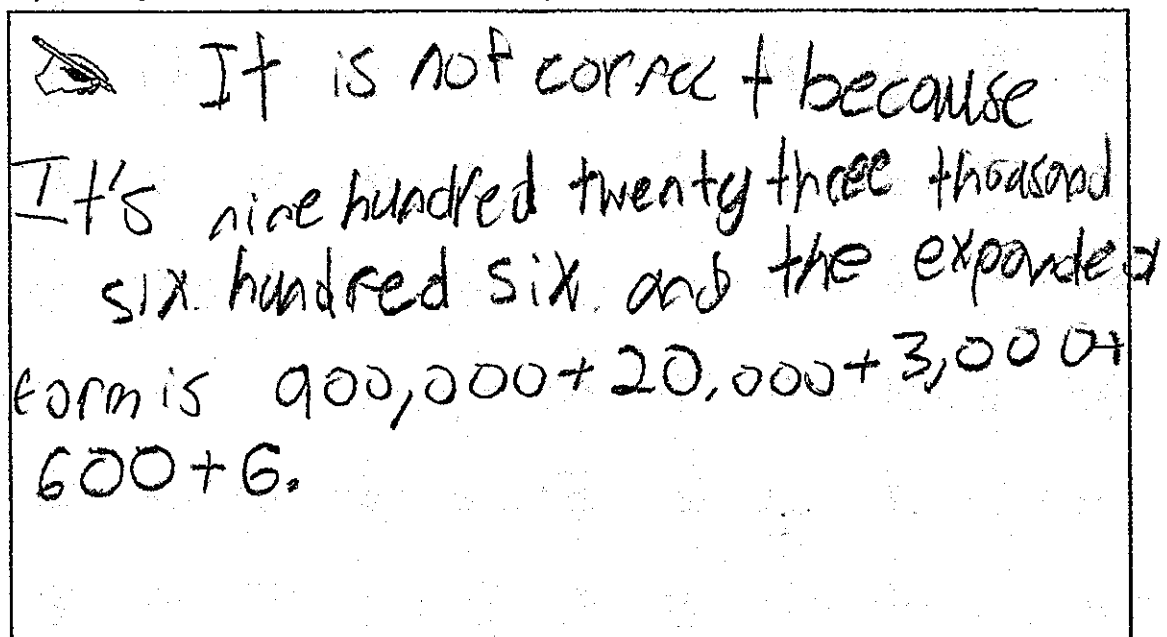 It is not correct because
It's nine hundred twenty three thousand
six hundred six and the expanded
form is 900,000+20,000+3,000+
600+6.